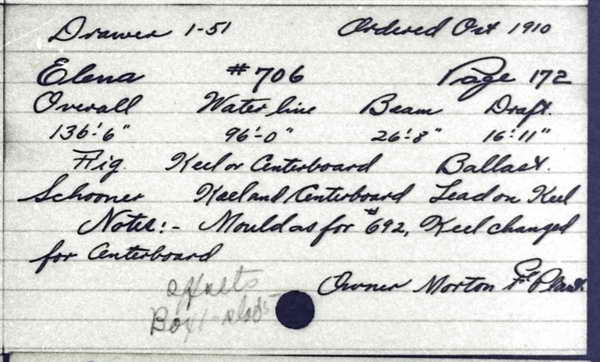 Drawer 1-51 Ordered Oct 1910
Elena #706 Page 172
Overall Water line Beam Draft.
136'-6" 96'-0" 26'-8" 16'-11"
Fig. Keel or Centerboard Ballast.
Schooner Keel and Centerboard Lead on Keel
Notes:- Mould as for #692, Keel changed
for Centerboard
Owner Morton F. Plant.
offsets
Box 1-